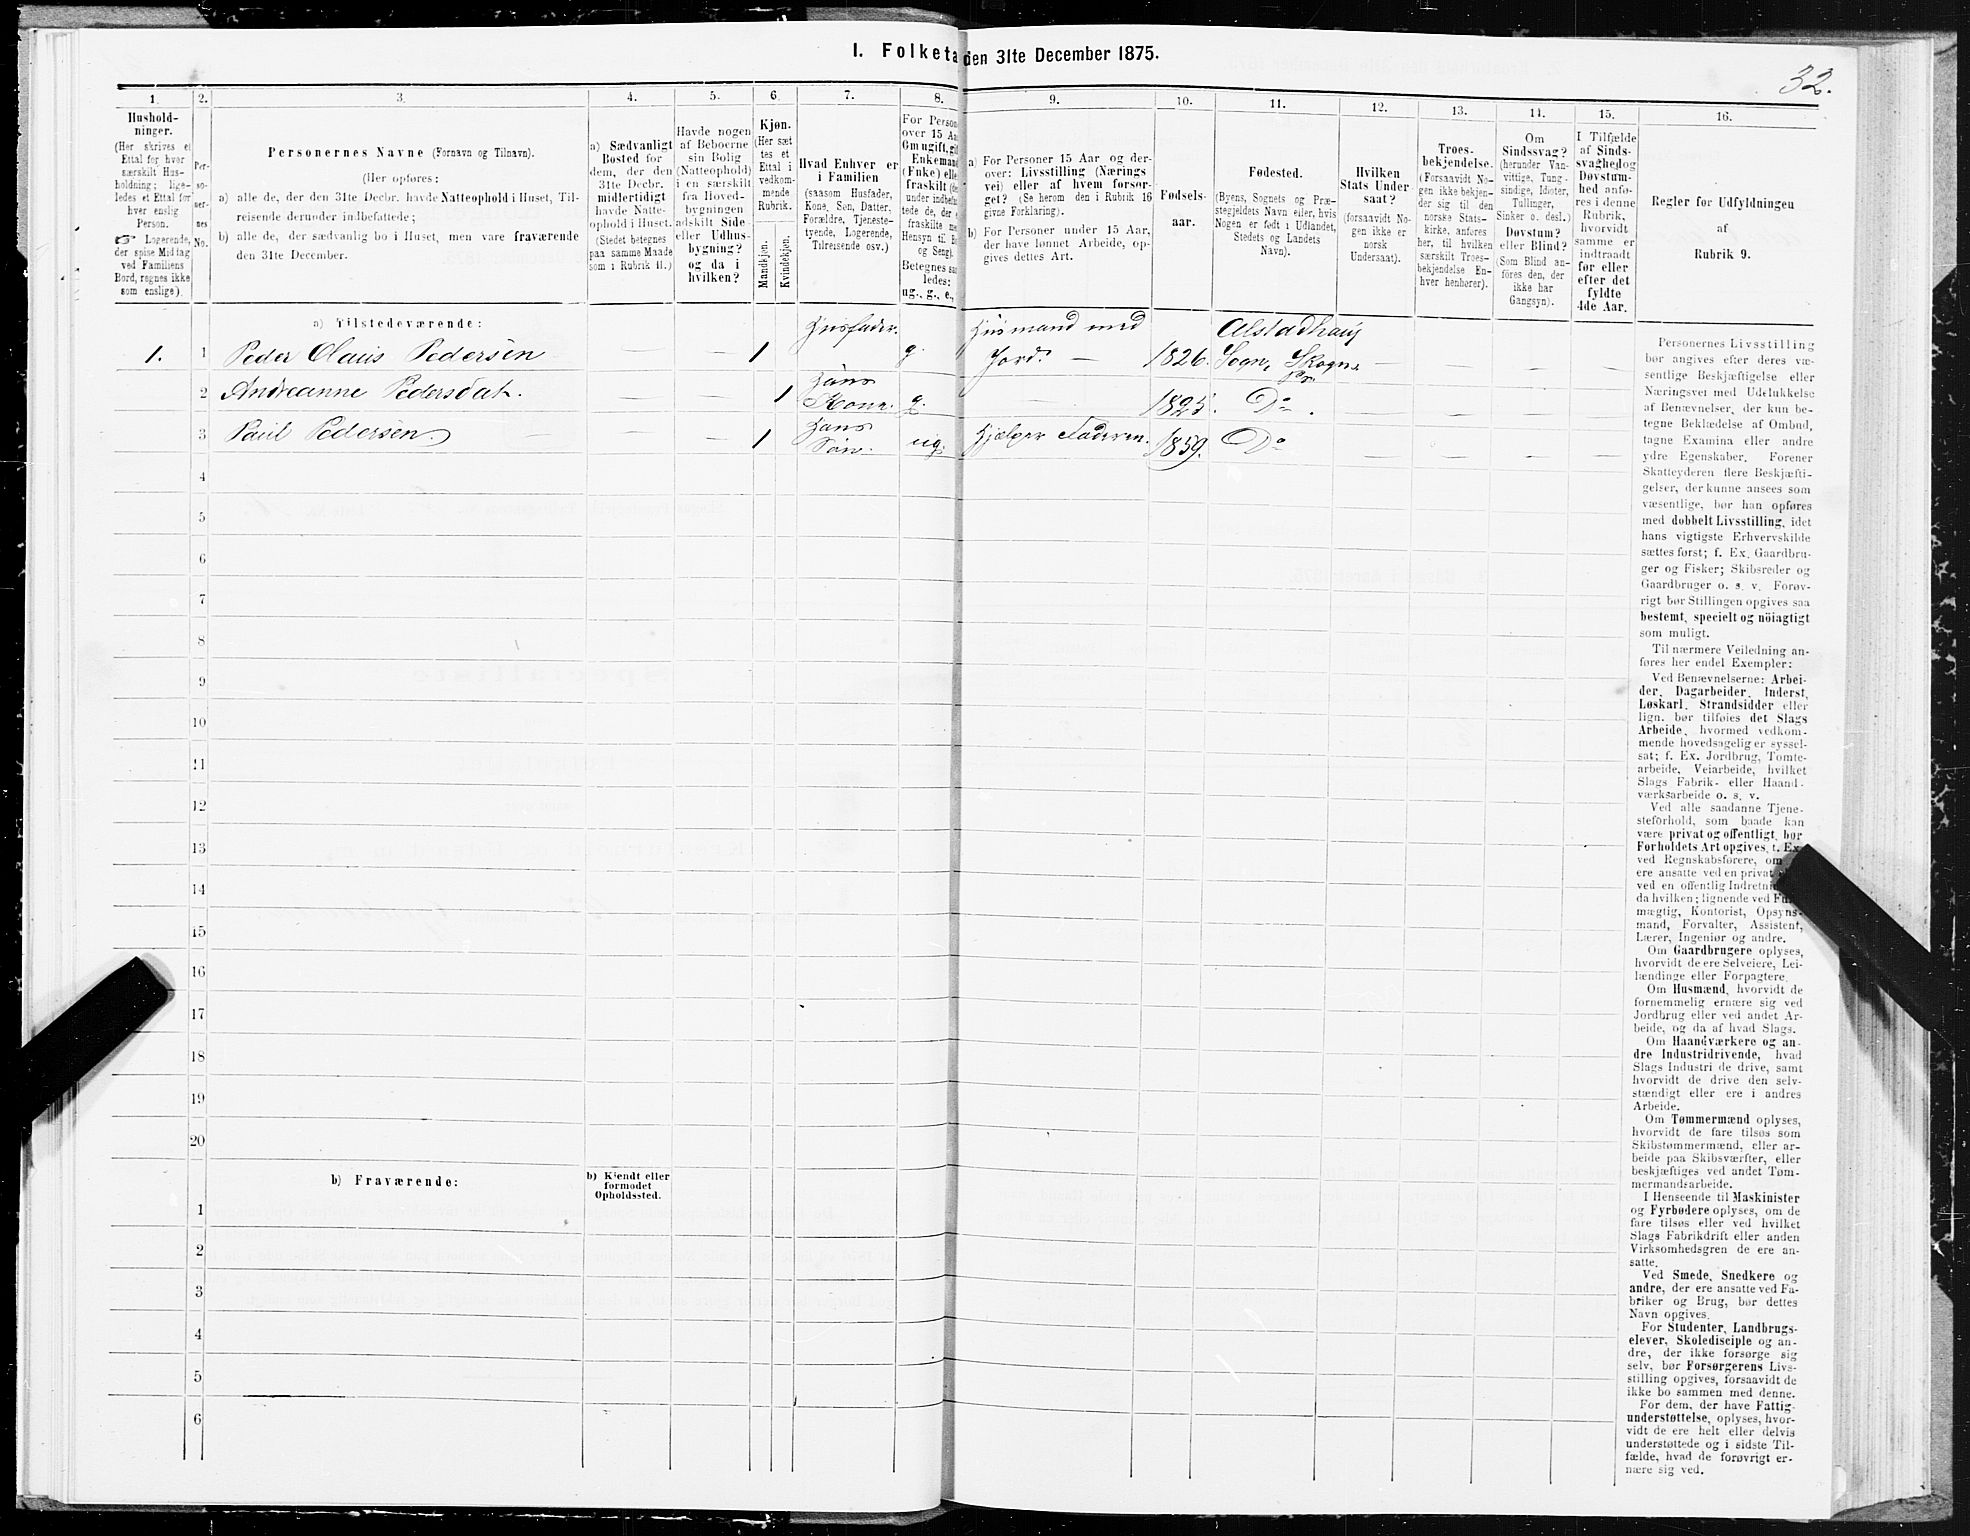 I. Folketa den 31te December 1875.
32.
1.
2.
3.
4.
5.
6.
7.
8.
9.
10.
11.
12.
13.
14.
15.
16.
Hushold-
ninger.
(Her skrives et
Ettal for hver
særskilt Hus-
holdning; lige-
ledes et Ettal for
hver enslig
Person.
☞ Logerende,
der spise Middag
ved Familiens
Bord, regnes ikke
som enslige).
Per-
so-
ner-
nes
No.
Personernes Navne (Fornavn og Tilnavn).
(Her opføres:
a) alle de, der den 31te Decbr. havde Natteophold i Huset, Til-
reisende derunder indbefattede;
b) alle de, der sædvanlig bo i Huset, men vare fraværende
den 31te December.
a) Sædvanligt
Bosted for
dem, der den
31te Decbr.
midlertidigt
havde Natte-
ophold i Huset.
(Stedet betegnes
paa samme Maade
som i Rubrik 11.)
Havde nogen
af Beboerne
sin Bolig
(Natteophold)
i en særskilt
fra Hoved-
bygningen
adskilt Side-
eller Udhus-
bygning?
og da i
hvilken?
Kjøn.
(Her sæt
tes et
Ettal i
vedkom-
mende
Rubrik.
Mandkjøn.
Kvindekjøn.
Hvad Enhver er
i Familien
(saasom Husfader,
Kone, Søn, Datter,
Forældre, Tjeneste-
tyende, Logerende,
Tilreisende osv.)
For Person
over 15 Aa
Om ugift, gif
Enkemand
(Enke) elle
fraskilt (de
under indbefa
tede de, der e
fraskilte m
Hensyn til B
og Seng).
Betegnes saa
ledes:
ug., g., e.,
a) For Personer 15 Aar og der-
over: Livsstilling (Nærings
vei) eller af hvem forsør-
get? (Se herom den i Rubrik 16
givne Forklaring).
b) For Personer under 15 Aar,
der have lønnet Arbeide, op-
gives dettes Art.
Fødsels-
aar.
Fødested.
(Byens, Sognets og Præ-
stegjeldets Navn eller, hvis
Nogen er født i Udlandet,
Stedets og Landets
Navn).
Hvilken
Stats Under
saat?
(forsaavidt No-
gen ikke er
norsk
Undersaat).
Troes-
bekjendelse.
(Forsaavidt No-
gen ikke bekjen-
der sig til den
norske Stats-
kirke, anføres
her, til hvilken
særskilt Troes-
bekjendelse En-
hver henhører).
Om
Sindssvag?
(herunder Van-
vittige, Tung-
sindige, Idioter,
Tullinger,
Sinker o. desl.)
Døvstum?
eller Blind?
(Som Blind an-
føres den, der
ikke har
Gangsyn).
I Tilfælde
af Sinds-
svaghed og
Døvstum-
hed anfø-
res i denne
Rubrik,
hvorvidt
samme er
indtraadt
før eller
efter det
fyldte
4de Aar.
Regler for Udfyldningen
af
Rubrik 9.
a) Tilstedeværende:
1. 1 Peder Olaus Pedersen — — 1 Husfader. g. Husmand med Jord. — 1826. Alstadhaug Sogn, Skogne Pr. — — — —
2 Andreanne Pedersdat. — — 1 Hans Kone. g. — 1825. Do. — — — —
3 Paul Pedersen. — — — 1 Hans Søn. ug. Hjælper Faderen. 1859. Do — — — —
4
5
6
7
8
9
10
11
12
13
14
15
16
17
18
19
20
b) Fraværende:
b) Kjendt eller
formodet
Opholdssted.
1
2
3
4
5
6
Personernes Livsstilling
bør angives efter deres væ-
sentlige Beskjæftigelse eller
Næringsvei med Udelukkelse
af Benævnelser, der kun be-
tegne Beklædelse af Ombud,
tagne Examina eller andre
ydre Egenskaber. Forener
Skatteyderen flere Beskjæfti-
gelser, der kunne ansees som
væsentlige, bør han opføres
med dobbelt Livsstilling, idet
hans vigtigste Erhvervskilde
sættes først; f. Ex. Gaardbru-
ger og Fisker; Skibsreder og
Gaardbruger o. s. v. Forøv-
rigt bør Stillingen opgives saa
bestemt, specielt og nöiagtigt
som muligt.
Til nærmere Veiledning an-
føres her endel Exempler:
Ved Benævnelserne: Arbei-
der, Dagarbeider, Inderst,
Løskarl, Strandsidder eller
lign. bør tilføies det Slags
Arbeide, hvormed vedkom-
mende hovedsagelig er syssel-
sat; f. Ex. Jordbrug, Tomte-
arbeide, Veiarbeide, hvilket
Slags Fabrik- eller Haand-
værksarbeide o. s. v.
Ved alle saadanne Tjene-
steforhold, som baade kan
være privat og offentligt, bør
Forholdets Art opgives, f. Ex.
ved Regnskabsførere, om
ere ansatte ved en privat
ved en offentlig Indretni
da hvilken; lignende ved Ful
mægtig, Kontorist, Opsyns-
mand, Forvalter, Assistent,
Lærer, Ingeniør og andre.
Om Gaardbrugere oplyses,
hvorvidt de ere Selveiere, Lei-
lændinge eller Forpagtere.
Om Husmænd, hvorvidt de
fornemmelig ernære sig ved
Jordbrug eller ved andet Ar-
beide, og da af hvad Slags.
Om Haandværkere og an-
dre Industridrivende, hvad
Slags Industri de drive, samt
hvorvidt de drive den selv-
stændigt eller ere i andres
Arbeide.
Om Tømmermænd oplyses,
hvorvidt de fare tilsøs som
Skibstømmermænd, eller ar-
beide paa Skibsværfter, eller
beskjæftiges ved andet Tøm-
mermandsarbeide.
I Henseende til Maskinister
og Fyrbødere oplyses, om de
fare tilsøs eller ved hvilket
Slags Fabrikdrift eller anden
Virksomhedsgren de ere an-
satte.
Ved Smede, Snedkere og
andre, der ere ansatte ved Fa-
briker og Brug, bør dettes
Navn opgives.
For Studenter, Landbrugs-
elever, Skoledisciple og an-
dre, der ikke forsørge sig
selv, bør Forsørgerens Livs-
stilling opgives, forsaavidt de
ikke bo sammen med denne.
For dem, der have Fattig-
understøttelse, oplyses, hvor-
vidt de ere helt eller delvis
understøttede og i sidste Til-
fælde, hvad de forøvrigt er-
nære sig ved.